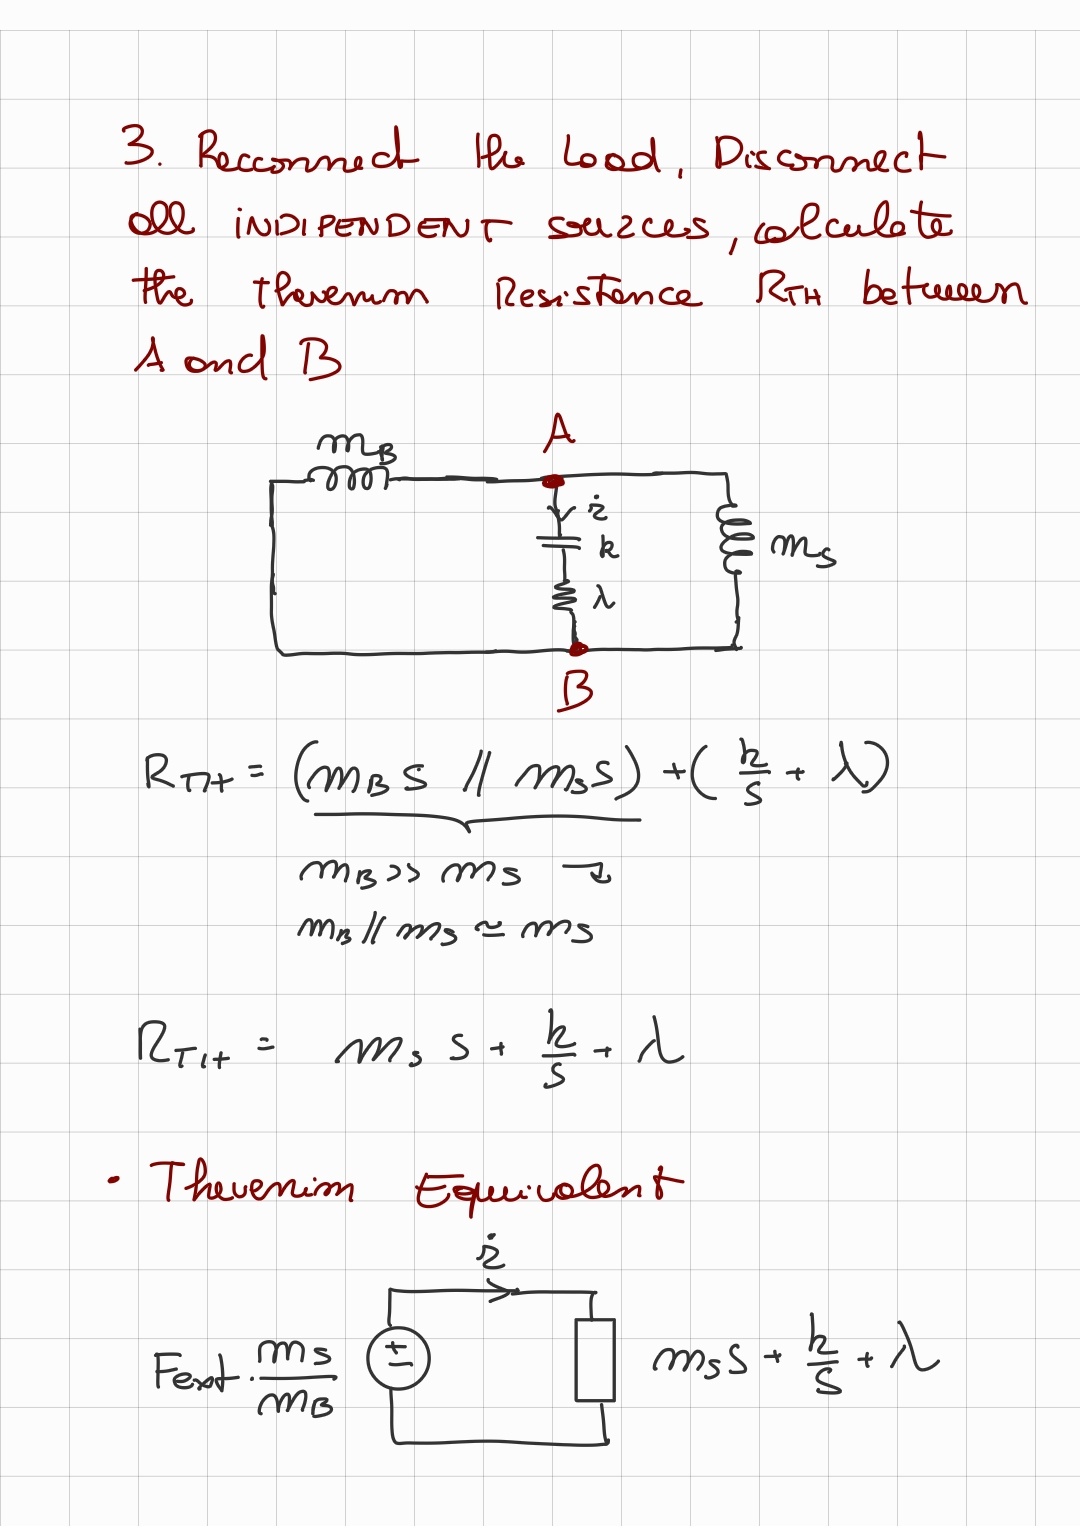 3. Reconnect the Load, Disconnect
all INDIPENDENT sources, calculate
the thevenin Resistance RTH between
A and B
mB
A
ż
k
mS
λ
B
RTH = (mB s // mS s) + (k/s + λ)
mB >> mS →
mB // mS ≃ mS
RTH = mS s + k/s + λ
• Thevenin Equivalent
ż
Fext · mS/mB
+
−
mS s + k/s + λ